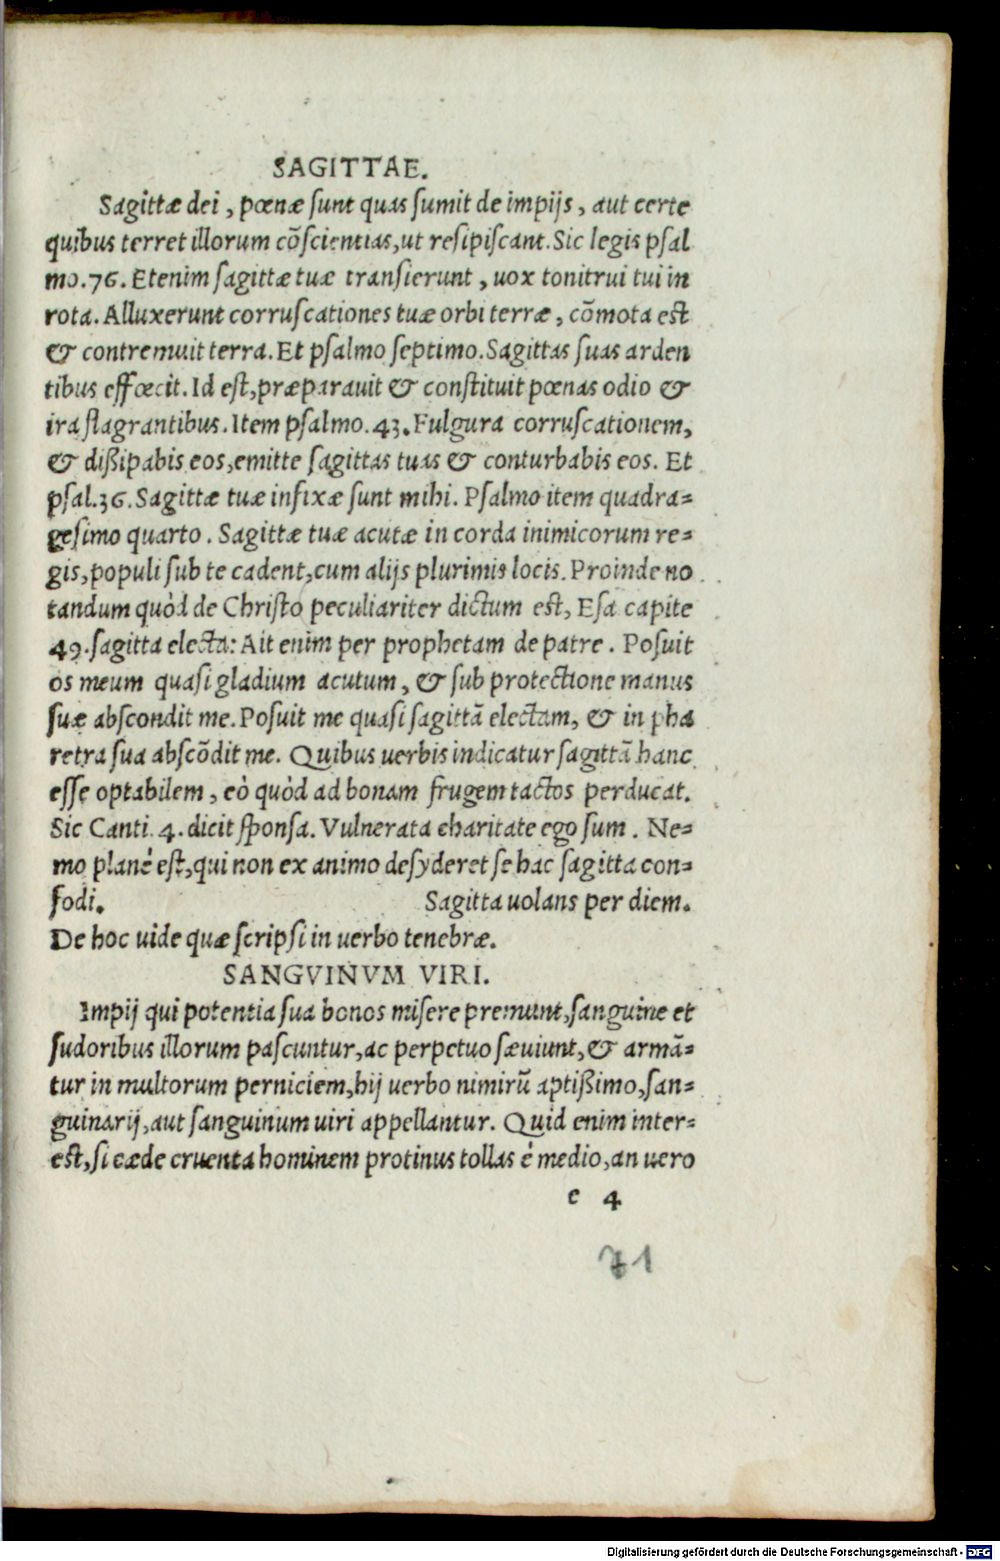 SAGITTAE.
Sagittæ dei, pœnæ sunt quas sumit de impijs, aut certe
quibus terret illorum cõscientias, ut resipiscant. Sic legis psal
mo. 76. Etenim sagittæ tuæ transierunt, uox tonitrui tui in
rota. Alluxerunt corruscationes tuæ orbi terræ, cõmota est
& contremuit terra. Et psalmo septimo. Sagittas suas arden
tibus effœcit. Id est, præparauit & constituit pœnas odio &
ira flagrantibus. Item psalmo. 43. Fulgura corruscationem,
& dißipabis eos, emitte sagittas tuas & conturbabis eos. Et
psal. 36. Sagittæ tuæ infixæ sunt mihi. Psalmo item quadra-
gesimo quarto. Sagittæ tuæ acutæ in corda inimicorum re-
gis, populi sub te cadent, cum alijs plurimis locis. Proinde no
tandum quòd de Christo peculiariter dictum est, Esa capite
49. sagitta electa: Ait enim per prophetam de patre. Posuit
os meum quasi gladium acutum, & sub protectione manus
suæ abscondit me. Posuit me quasi sagittã electam, & in pha
retra sua abscõdit me. Quibus uerbis indicatur sagittã hanc
esse optabilem, eò quòd ad bonam frugem tactos perducat.
Sic Canti. 4. dicit sponsa. Vulnerata charitate ego sum. Ne-
mo planè est, qui non ex animo desyderet se hac sagitta con-
fodi. Sagitta uolans per diem.
De hoc uide quæ scripsi in uerbo tenebræ.
SANGVINVM VIRI.
Impij qui potentia sua bonos misere premunt, sanguine et
sudoribus illorum pascuntur, ac perpetuo sæuiunt, & armã-
tur in multorum perniciem, hij uerbo nimirũ aptißimo, san-
guinarij, aut sanguinum uiri appellantur. Quid enim inter-
est, si cæde cruenta hominem protinus tollas è medio, an uero
e 4
71
Digitalisierung gefördert durch die Deutsche Forschungsgemeinschaft - DFG